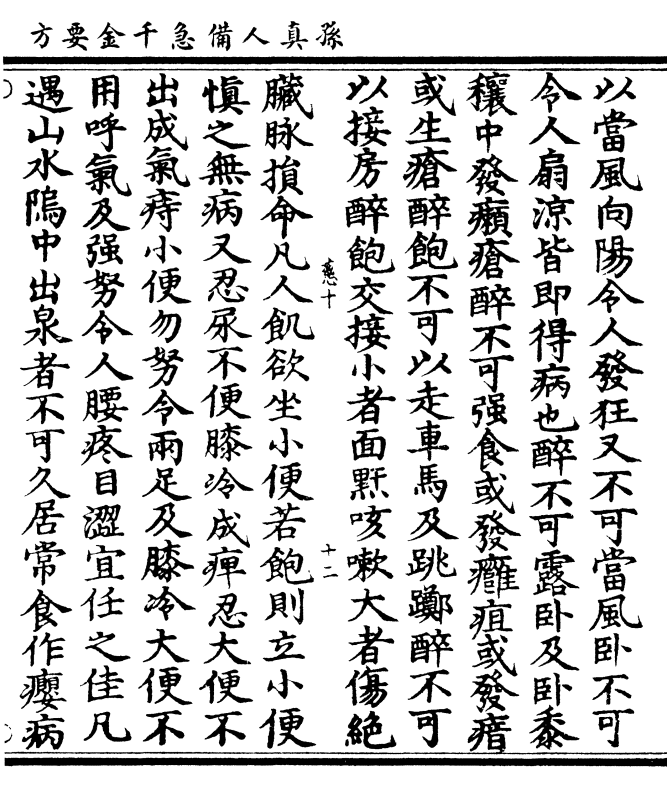 孫真人備急千金要方
以當風向陽令人發狂又不可當風卧不可
令人扇涼皆即得病也醉不可露卧及卧黍
穰中發癩瘡醉不可强食或發癰疽或發瘖
或生瘡醉飽不可以走車馬及跳躑醉不可
以接房醉飽交接小者面䵟咳嗽大者傷絶
十二
臟脉損命凡人飢欲坐小便若飽則立小便
慎之無病又忍尿不便膝冷成痺忍大便不
出成氣痔小便勿努令兩足及膝冷大便不
用呼氣及强努令人腰疼目澀宜任之佳凡
遇山水隖中出泉者不可久居常食作癭病